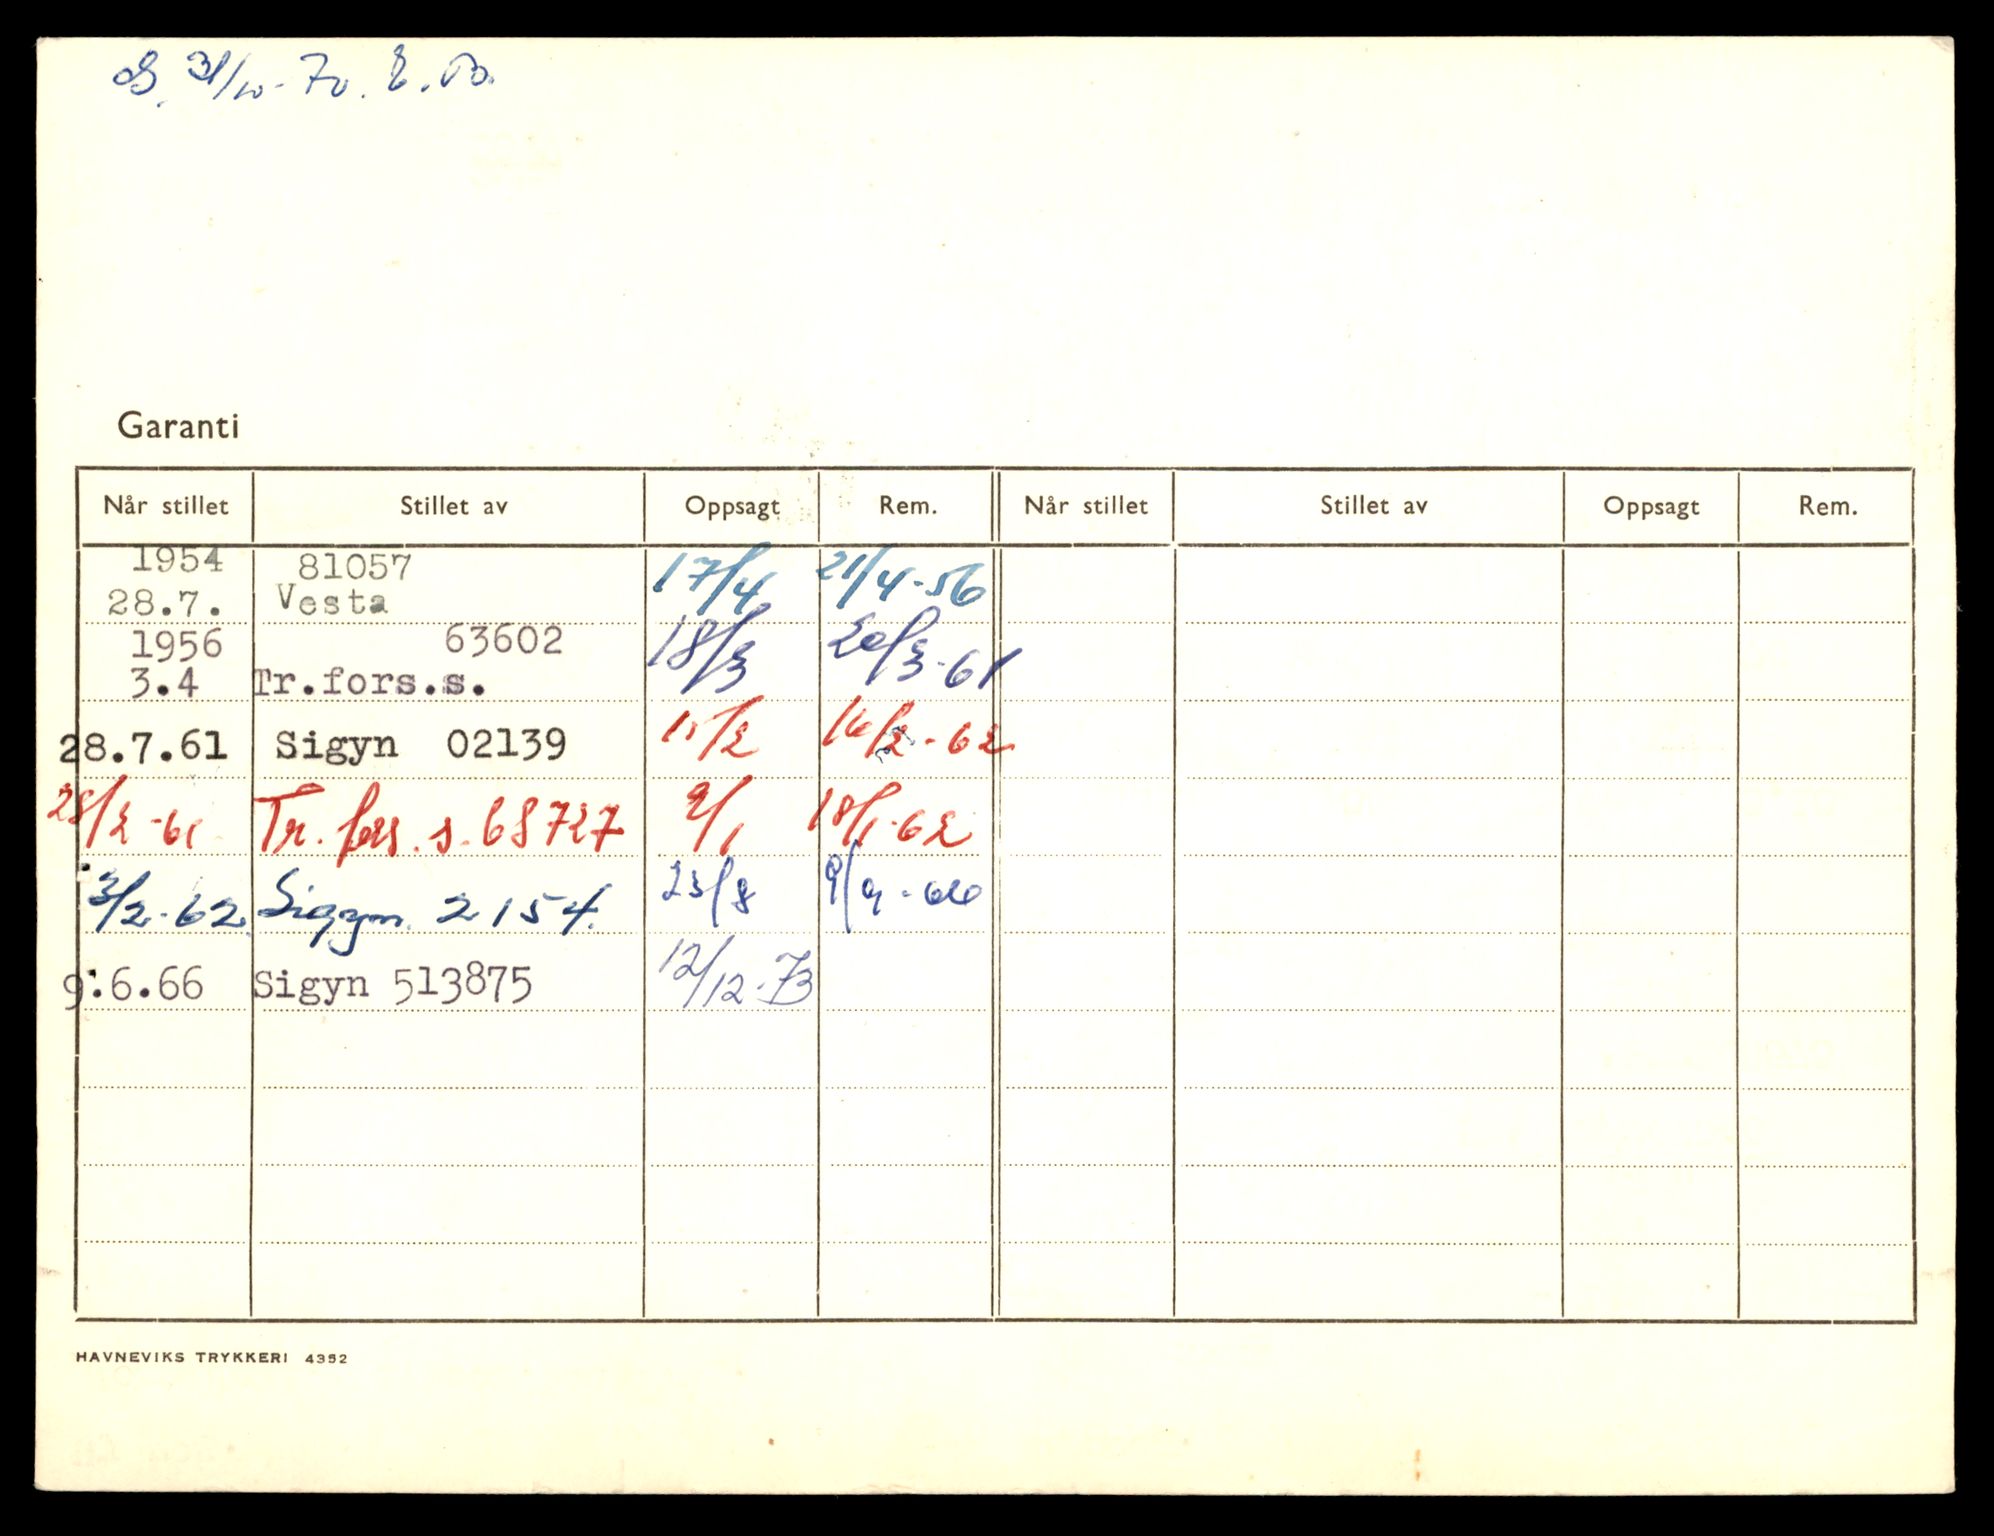 31/10-70. E.B.
Garanti
Når stillet Stillet av Oppsagt Rem. Når stillet Stillet av Oppsagt Rem.
1954 81057 17/4 21/4-56
28.7. Vesta
1956 63602 18/3 20/3-61
3.4 Tr.fors.s.
28.7.61 Sigyn 02139 15/2 16/2-62
28/2-61 Tr.fors.s. 68727 9/1 18/1-62
3/2-62. Sigyn. 2154. 23/8 9/9-66
9.6.66 Sigyn 513875 12/12-73
HAVNEVIKS TRYKKERI 4352